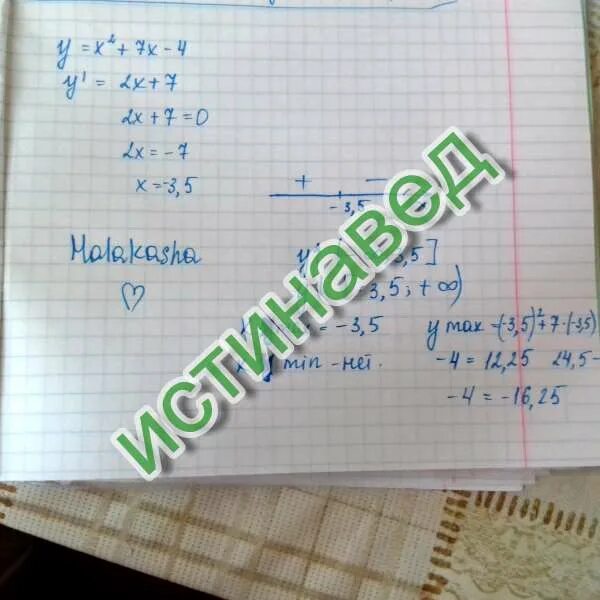 y = x² + 7x - 4
y' = 2x + 7
2x + 7 = 0
2x = -7
x = -3,5
+ -
-3,5
Malakasha
♡
3,5]
3,5; + ∞)
= -3,5
y max -(-3,5)² + 7·(-3,5)
min - нет.
-4 = 12,25 24,5-
-4 = -16,25
истинавед